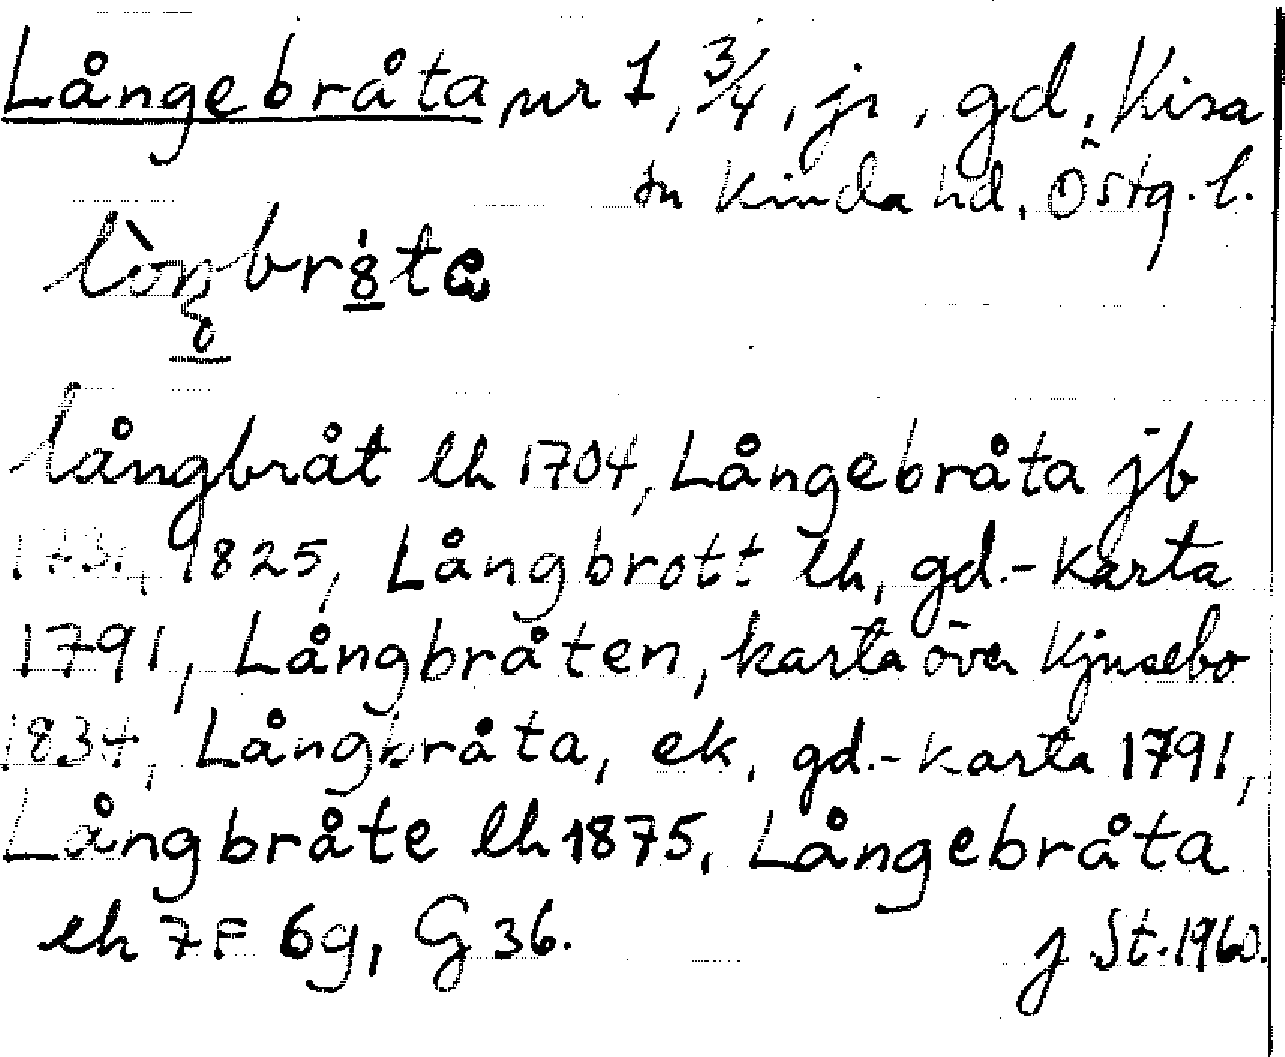 Långebråta nr 1, 3/4, jr, gd, Kisa
sn Kinda hd, Östg. l.
långbråt lh 1704, Långebråta jb
1825, Långbrott lh, gd.-karta
1791, Långbråten, karta över Kjusebo
1834, Långbråta, ek, gd.-karta 1791,
Långbråte lh 1875, Långebråta
eh 7F 6g, G 36. J St. 1960.